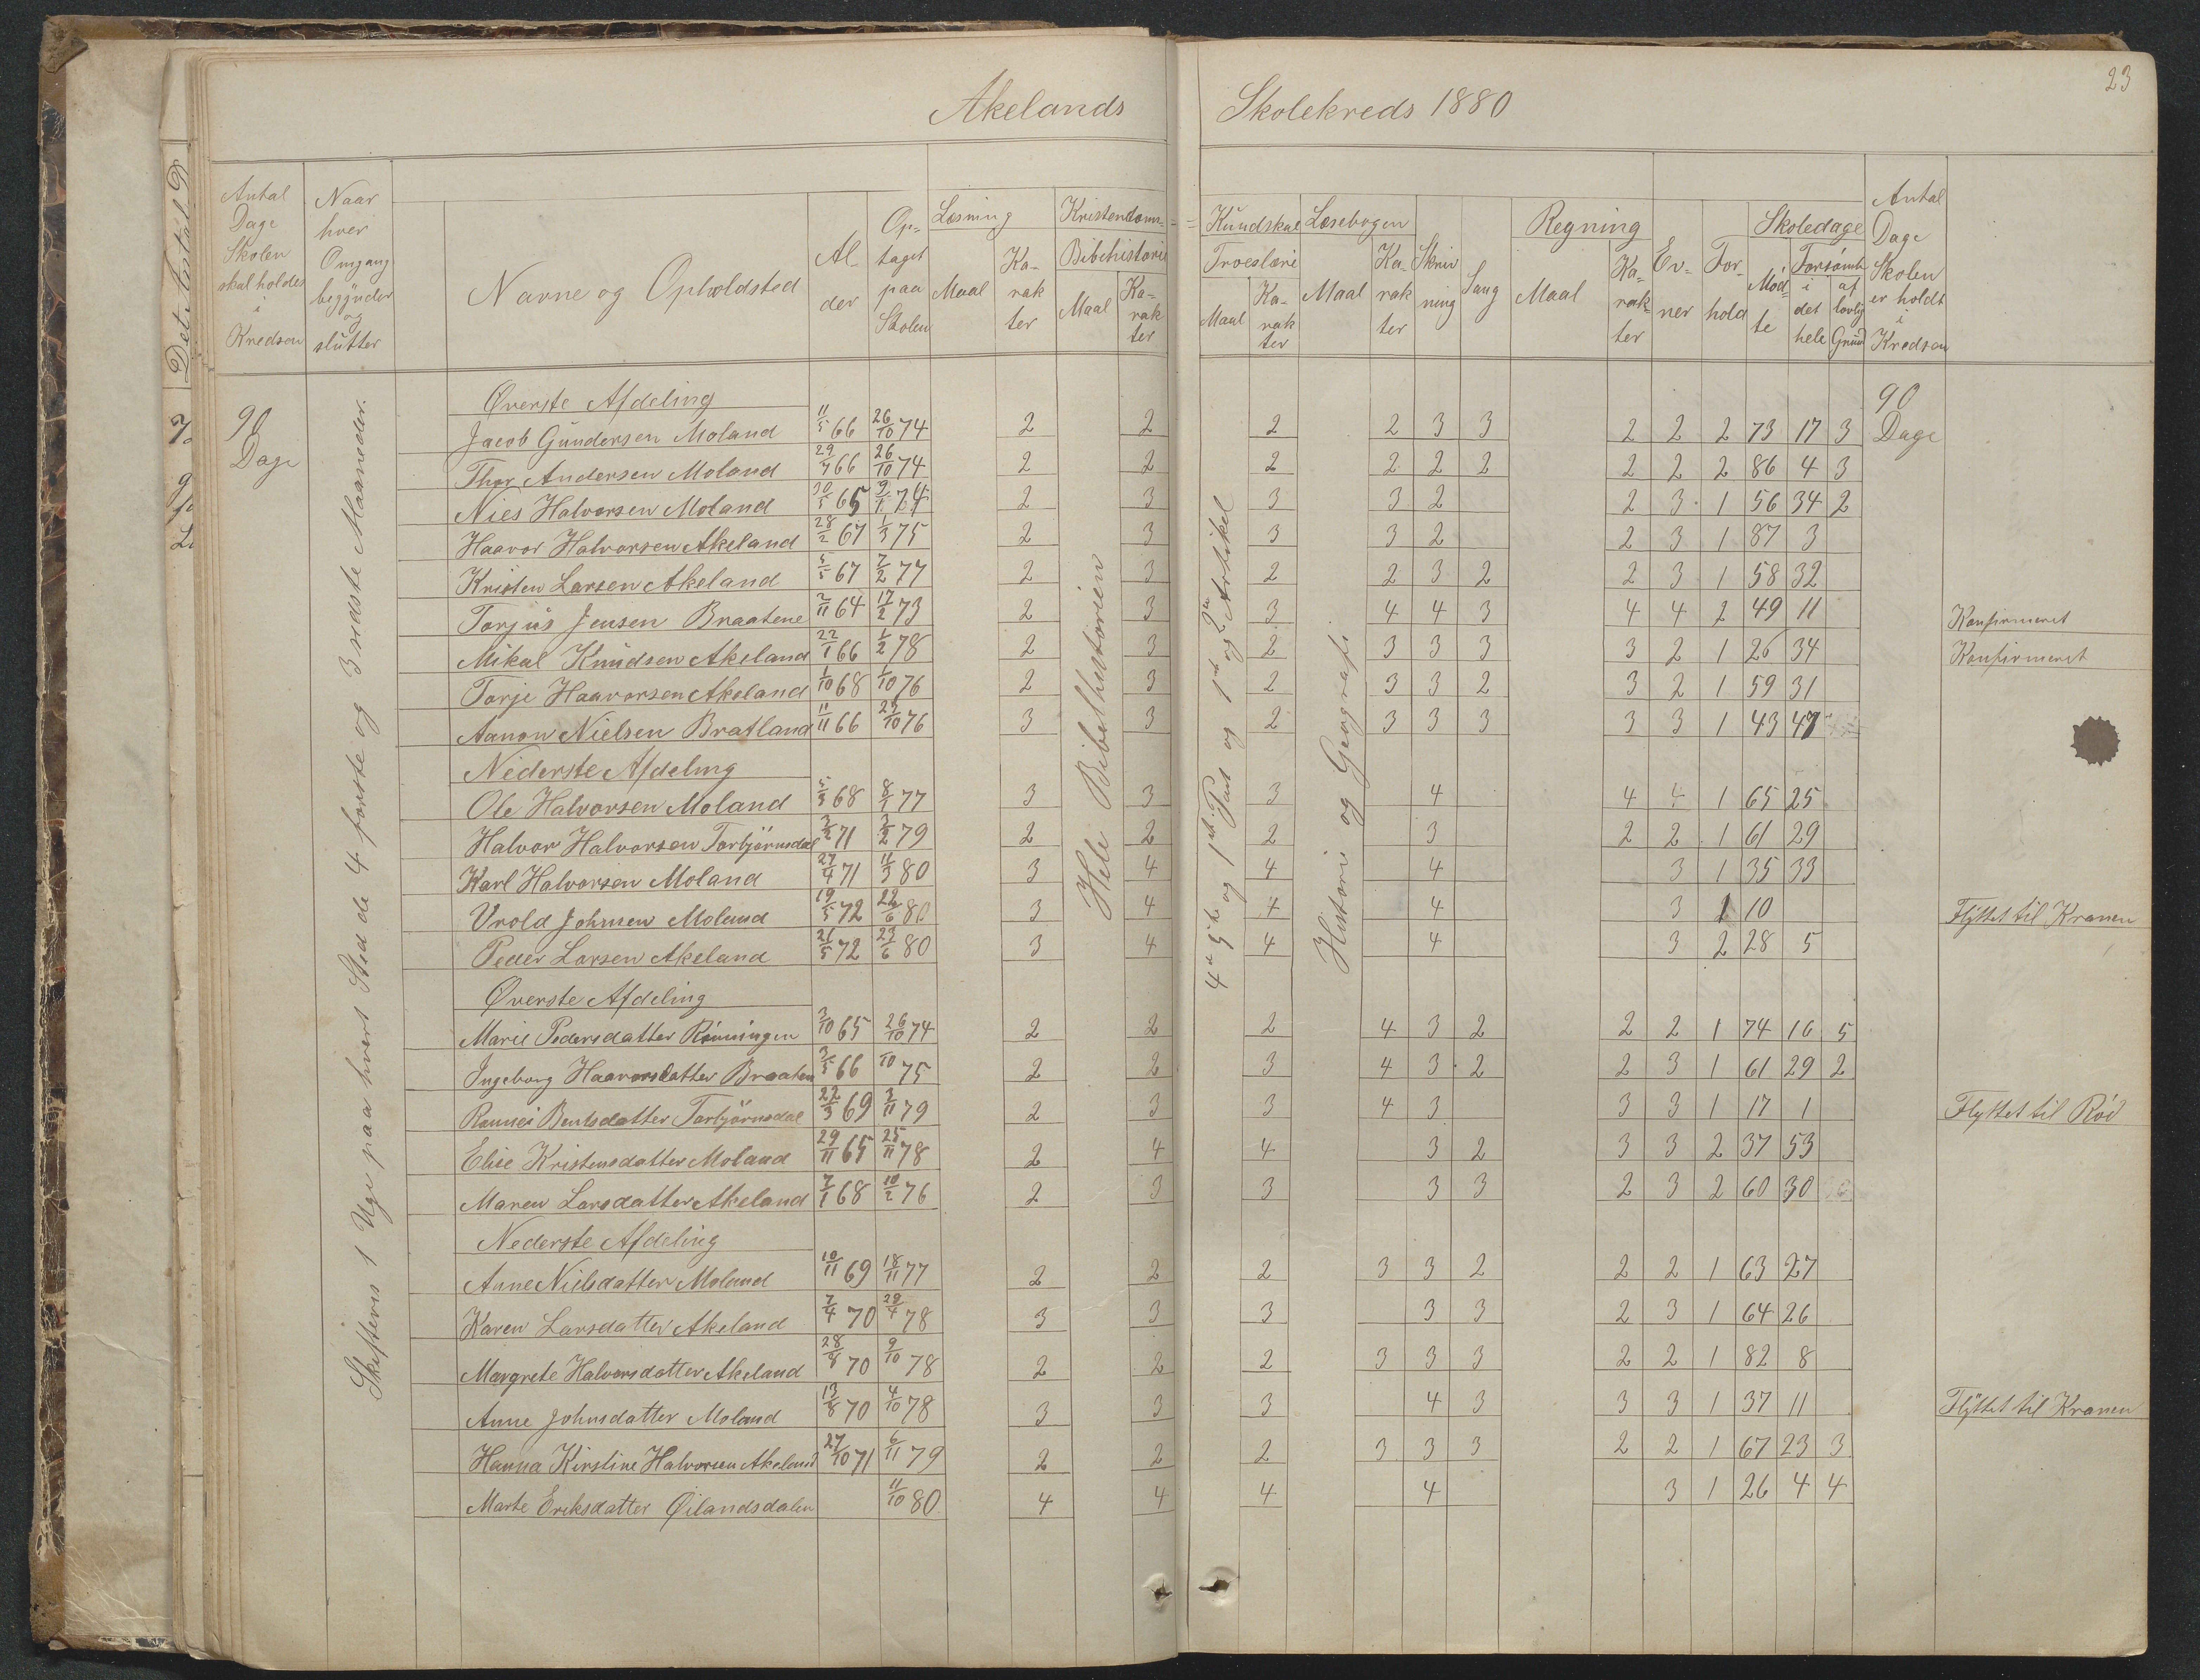 23
Akelands Skolekreds 1880
Antal Dage Skolen skal holdes i Kredsen
Naar hver Omgang begynder og slutter
Navne og Opholdsted
Alder
Optaget paa Skolen
Læsning Maal Karakter
Kristendoms= =Kundskab
Bibelhistorie Maal Karakter
Troeslære Maal Karakter
Læsebogen Maal Karakter
Skrivning
Sang
Regning Maal Karakter
Evner
Forhold
Skoledage Mødte Forsømt i det hele af lovlig Grund
Antal Dage Skolen er holdt i Kredsen
90 Dage
Skiftevis 1 Uge paa hvert Sted de 4 første og 3 sidste Maaneder.
Hele Bibelhistorien
4de 5te og 1ste Part og 1ste og 2den Artikel
Historie og Geografi
90 Dage
Øverste Afdeling
Jacob Gundersen Moland 11/5 66 26/10 74 2 2 2 2 3 3 2 2 2 73 17 3
Thor Andersen Moland 29/7 66 26/10 74 2 2 2 2 2 2 2 2 2 86 4 3
Niels Halvorsen Moland 30/5 65 9/1 74 2 3 3 3 2 2 3 1 56 34 2
Haavor Halvorsen Akeland 28/2 67 1/3 75 2 3 3 3 2 2 3 1 87 3
Kristen Larsen Akeland 5/5 67 7/2 77 2 3 2 2 3 2 2 3 1 58 32
Torjus Jensen Braatene 2/11 64 17/2 73 2 3 3 4 4 3 4 4 2 49 11 Konfirmeret
Mikal Knudsen Akeland 22/1 66 1/2 78 2 3 2 3 3 3 3 2 1 26 34 Konfirmeret
Torje Haavorsen Akeland 1/10 68 1/10 76 2 3 2 3 3 2 3 2 1 59 31
Aanon Nielsen Bratland 11/11 66 23/10 76 3 3 2 3 3 3 3 3 1 43 47
Nederste Afdeling
Ole Halvorsen Moland 5/3 68 8/1 77 3 3 3 4 4 4 1 65 25
Halvor Halvorsen Torbjörnsdal 3/2 71 3/2 79 2 2 2 3 2 2 1 61 29
Karl Halvorsen Moland 27/4 71 11/3 80 3 4 4 4 3 1 35 33
Vrold Johnsen Moland 19/5 72 22/6 80 3 4 4 4 3 1 10 Flyttet til Kranen
Peder Larsen Akeland 21/5 72 23/6 80 3 4 4 4 3 2 28 5
Øverste Afdeling
Marie Pedersdatter Rönningen 3/10 65 26/10 74 2 2 2 4 3 2 2 2 1 74 16 5
Ingeborg Haavorsdatter Braaten 3/5 66 10 75 2 2 3 4 3 2 2 3 1 61 29 2
Rannei Bentsdatter Torbjörnsdal 22/3 69 3/11 79 2 3 3 4 3 3 3 1 17 1 Flyttet til Röd
Elise Kristensdatter Moland 29/11 65 25/11 78 2 4 4 3 2 3 3 2 37 53
Maren Larsdatter Akeland 7/1 68 10/2 76 2 3 3 3 3 2 3 2 60 30
Nederste Afdeling
Anne Nielsdatter Moland 10/11 69 18/11 77 2 2 2 3 3 2 2 2 1 63 27
Karen Larsdatter Akeland 7/4 70 29/4 78 3 3 3 3 3 2 3 1 64 26
Margrete Halvorsdatter Akeland 28/8 70 9/10 78 2 2 2 3 3 3 2 2 1 82 8
Anne Johnsdatter Moland 13/8 70 4/10 78 3 3 3 4 3 3 3 1 37 11 Flyttet til Kranen
Hanna Kirstine Halvorsen Akeland 27/10 71 6/11 79 2 2 2 3 3 3 2 2 1 67 23 3
Marte Eriksdatter Øilandsdalen 11/10 80 4 4 4 4 3 1 26 4 4